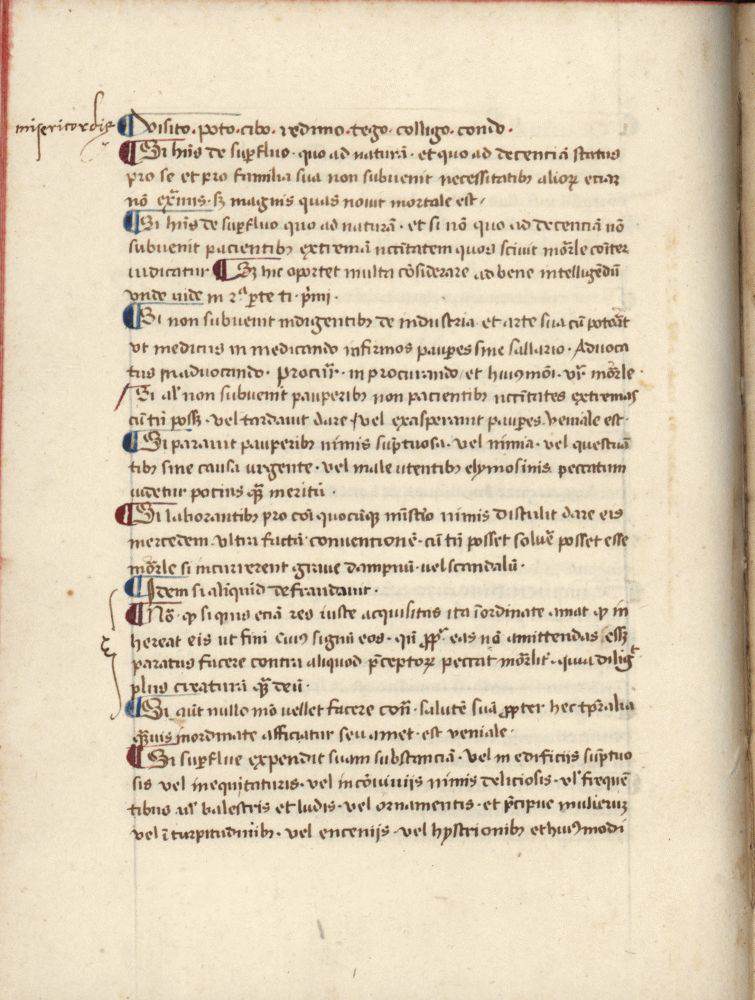 misericordie
¶ Visito · poto · cibo · redimo · tego · colligo · condo ·
¶ Si hñs de suꝑfluo · quo ad naturã · et quo ad decenciã status
pro se et pro familia sua non subvenit necessitatibꝫ alioꝝ eciaꝫ
nõ ex̃mis · sꝫ magnis quas novit mortale est /
¶ Si hñs de suꝑfluo quo ad naturã · et si nõ quo ad decenciã nõ
subvenit pacientibꝫ extremã nc̃citatem quos scivit mõrle cõiter
iudicatur ¶ Sꝫ hic oportet multa cõsiderare ad bene intelligẽdũ
vnde vide in 2ª ꝑte ti · p̃mi ·
¶ Si non subvenit indigentibꝫ de industria · et arte sua cũ potõit
vt medicus in medicando infirmos pauꝑes sine sallario · Advoca
tus in advocando · procur̃ · in procurando / et huiꝰmõi · vr̃ mõrle ·
/ Si al' non subvenit pauperibꝫ non pacientibꝫ nc̃citates extremas
cũ tñ possꝫ · vel tardavit dare / vel exasperavit pauꝑes · veniale est ·
¶ Si paravit pauperibꝫ nimis sũptuosa · vel nimia · vel questuã
tibꝫ sine causa urgente · vel male utentibꝫ elymosinis peccatum
videtur potius qꝫ̃ meritũ ·
¶ Si laborantibꝫ pro eo quocũqꝫ mĩsterio nimis distulit dare eis
mercedem · ultra factã conventionẽ · cũ tñ posset solvẽ posset esse
mõrle si incurrerent grave dampnũ · vel scandalũ ·
¶ Idem si aliquid defraudavit ·
¶ Nõ · ꝙ si quis eciã res iuste acquisitas ita ĩordinate amat ꝙ in
hereat eis ut fini cuiꝰ signũ eos · qñ ꝓp̃ eas nõ amittendas essꝫ
paratus facere contra aliquod p̃ceptoꝝ peccat mõrlit̃ · quia diligᵗ
plus creaturã qꝫ̃ deũ ·
¶ Si aũt nullo mõ vellet facere con̄ · salutẽ suã ꝓpter hec tꝑalia
qꝫ̃vis inordinate afficiatur seu amet · est veniale ·
¶ Si suꝑflue expendit suam substanciã · vel in edificiis sũptuo
sis vel in equitaturis · vel in cõviviis nimis deliciosis · ul' frequẽ
tibus · ul' balestris et ludis · vel ornamentis · et p̃cipue mulieruꝫ
vel ĩ turpitudinibꝫ · vel enceniis · vel hystrionibꝫ et huiꝰmodi